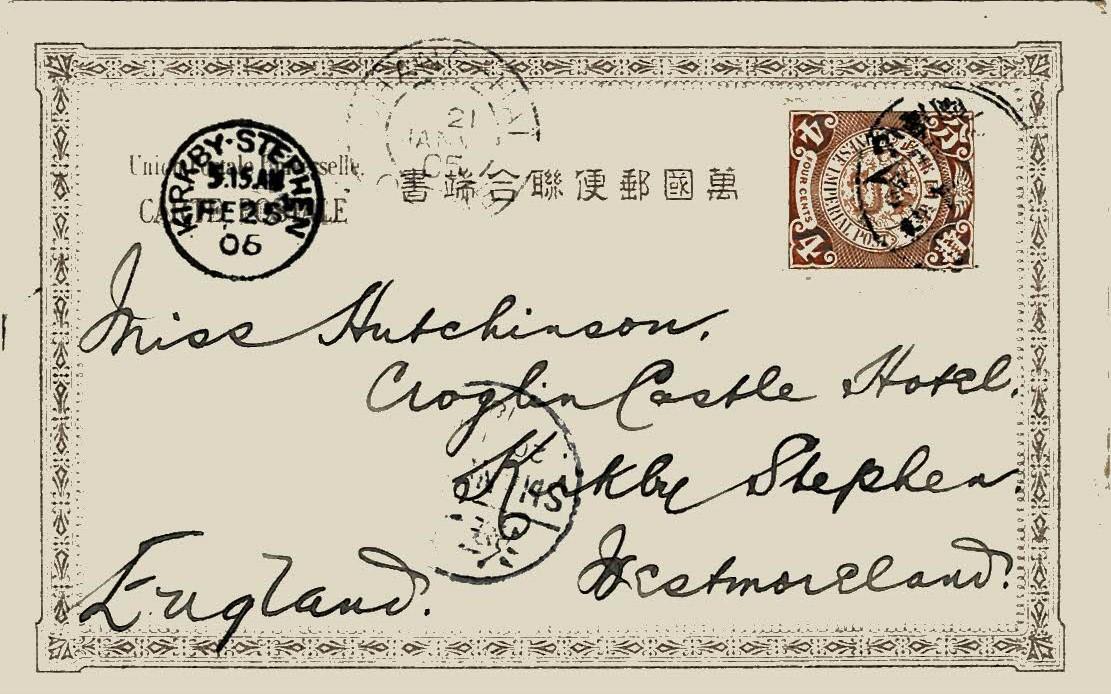 KIRKBY·STEPHEN
5.15.AM
FE 25
06
21
JAN
Union Postale Universelle
CARTE POSTALE
書端合聯便郵國萬
4
FOUR CENTS
4
CHINESE IMPERIAL POST
Miss Hutchinson,
Croglin Castle Hotel.
Kirkby Stephen.
Westmoreland.
England.